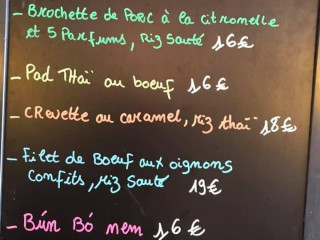 - Brochette de Porc à la citronelle
et 5 Parfums, Riz Sauté 16€
- Pad Thaï au boeuf 16€
- CRevette au caramel, riz thaï 18€
- Filet de Boeuf aux oignons
confits, riz Sauté 19€
- Bún Bó nem 16€